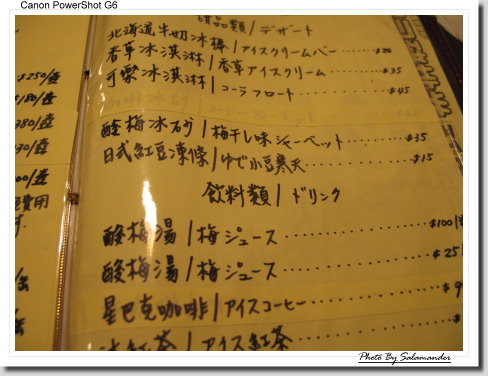 Canon PowerShot G6
甜品類 / デザート
北海道牛奶冰棒 / アイスクリームバー ‥‥ $20
香草冰淇淋 / 香草アイスクリーム ‥‥‥ $35
可樂冰淇淋 / コーラフロート ‥‥‥‥ $45
酸梅冰砂 / 梅干し味シャーベット ‥‥‥‥ $35
日式紅豆凍條 / ゆで小豆寒天 ‥‥‥‥‥ $15
飲料類 / ドリンク
酸梅湯 / 梅ジュース ‥‥‥‥‥‥‥ $100/
酸梅湯 / 梅ジュース ‥‥‥‥‥‥‥ $25
星巴克咖啡 / アイスコーヒー ‥‥‥‥‥ $9
冰紅茶 / アイス紅茶 ‥‥‥‥‥‥ $
$250/壺
180/壺
380/壺
30/壺
00/壺
費用
Photo By Salamander